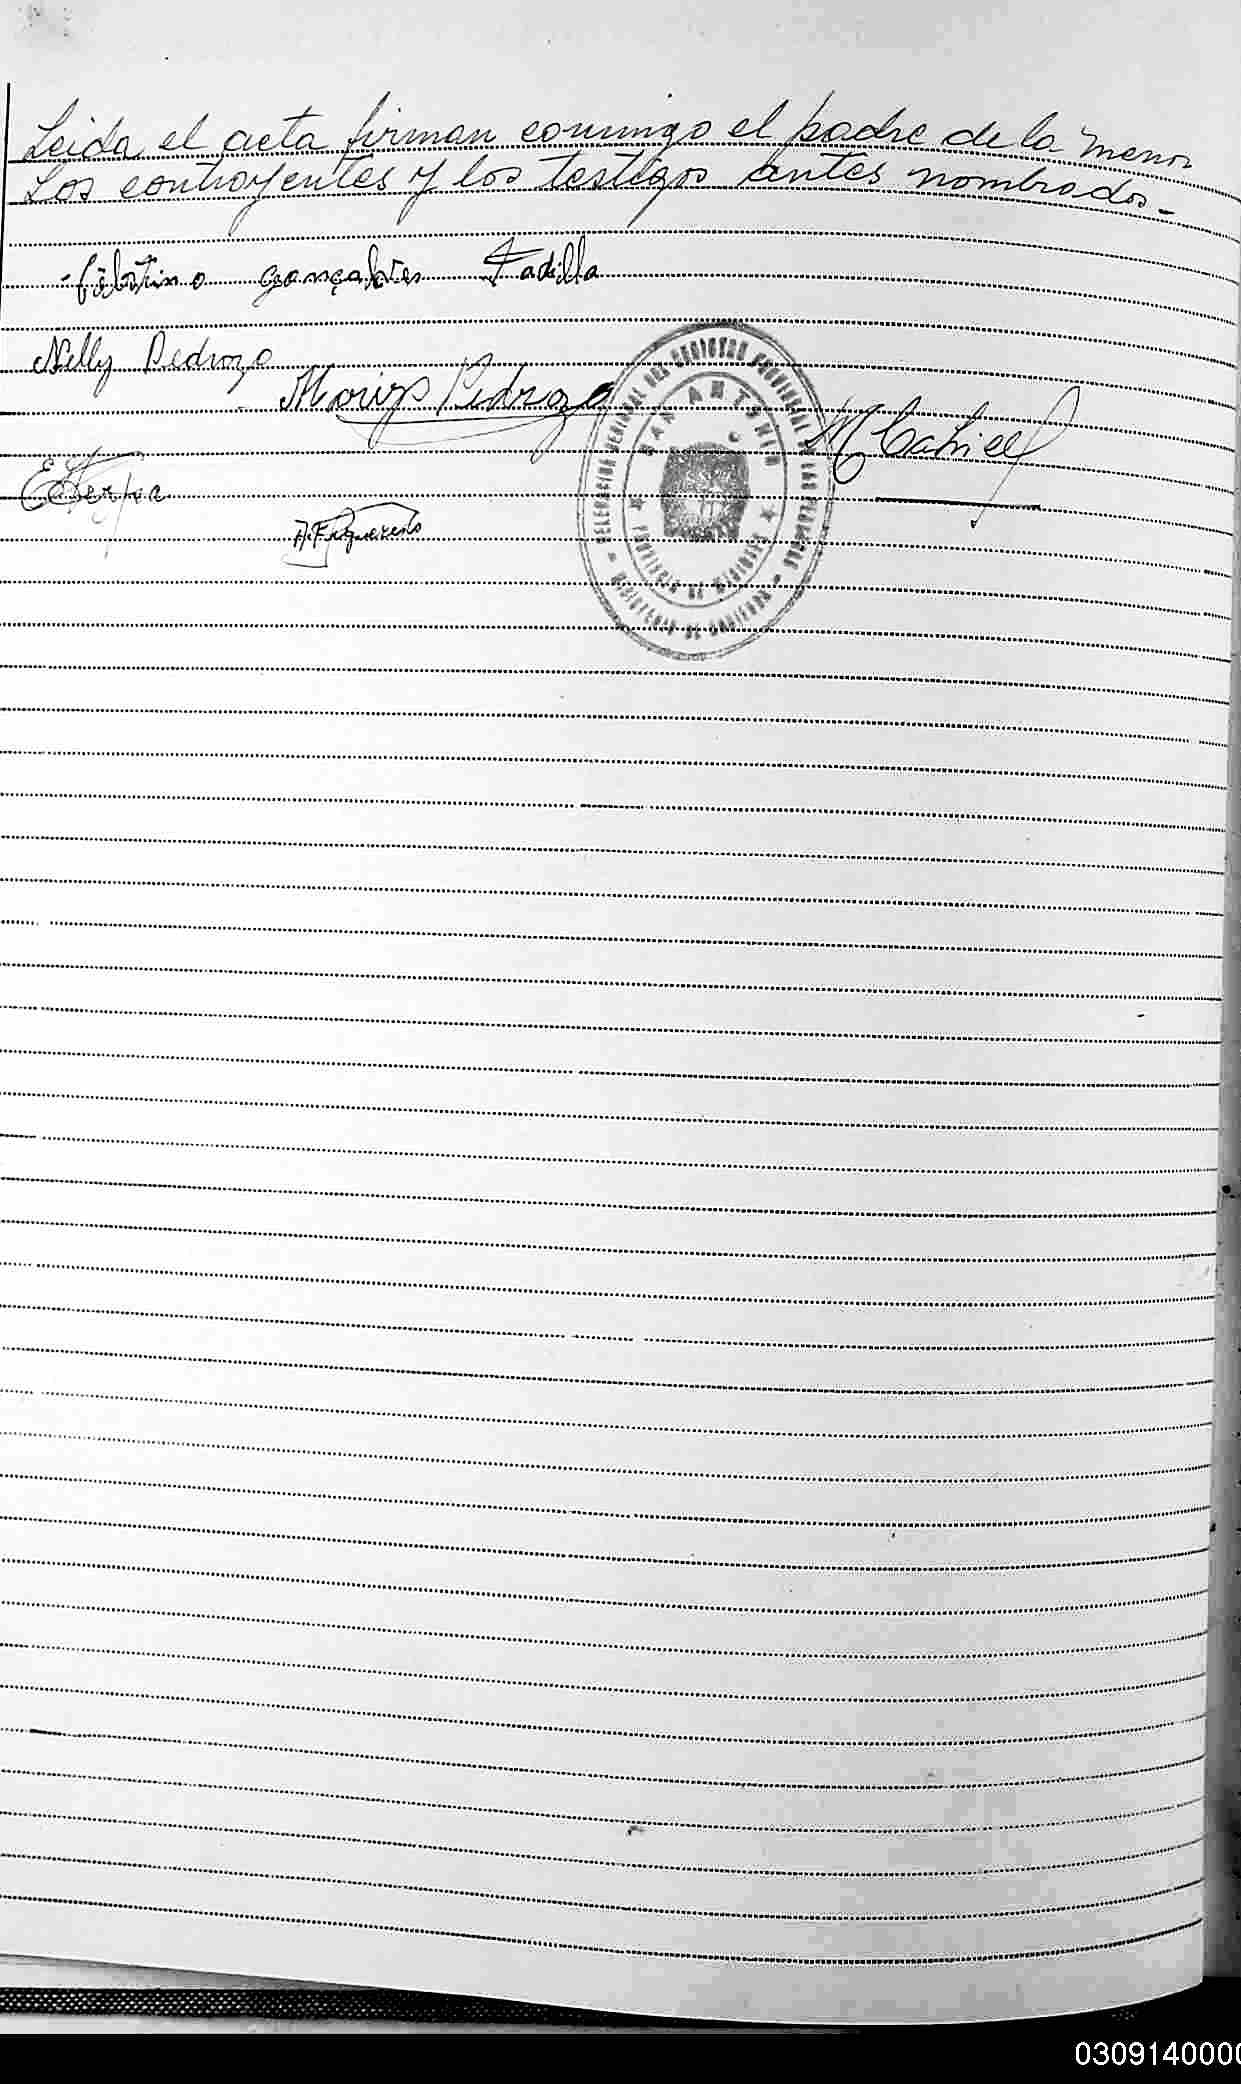 Leida el acta firman conmigo el padre de la menor
Los contrayentes y los testigos antes nombrados.-
gonçalves Padilla
Nelly Pedrozo
Pedrozo
A. Figueredo
DELEGACION REGIONAL DEL REGISTRO PROVINCIAL DE LAS PERSONAS
SAN ANTONIO
PROVINCIA DE MISIONES
MINISTERIO DE GOBIERNO
0309140000